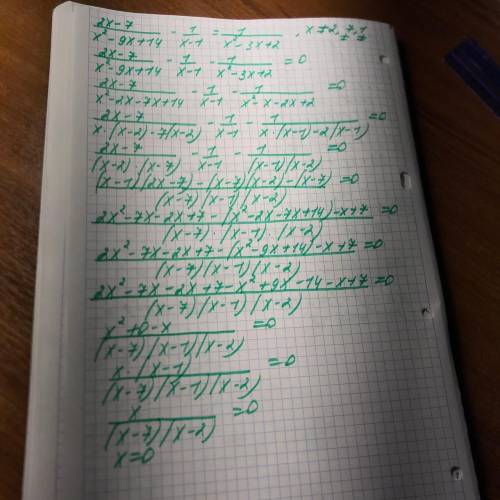 (2x-7)/(x²-9x+14) - 1/(x-1) = 1/(x²-3x+2), x≠2, 7, 1
(2x-7)/(x²-9x+14) - 1/(x-1) - 1/(x²-3x+2) = 0
(2x-7)/(x²-2x-7x+14) - 1/(x-1) - 1/(x²-x-2x+2) = 0
(2x-7)/(x·(x-2)-7(x-2)) - 1/(x-1) - 1/(x·(x-1)-2(x-1)) = 0
(2x-7)/((x-2)·(x-7)) - 1/(x-1) - 1/((x-1)(x-2)) = 0
((x-1)(2x-7)-(x-7)(x-2)-(x-7))/((x-7)(x-1)(x-2)) = 0
(2x²-7x-2x+7-(x²-2x-7x+14)-x+7)/((x-7)·(x-1)·(x-2)) = 0
(2x²-7x-2x+7-(x²-9x+14)-x+7)/((x-7)(x-1)(x-2)) = 0
(2x²-7x-2x+7-x²+9x-14-x+7)/((x-7)(x-1)(x-2)) = 0
(x²+0-x)/((x-7)(x-1)(x-2)) = 0
(x·(x-1))/((x-7)(x-1)(x-2)) = 0
x/((x-7)(x-2)) = 0
x=0